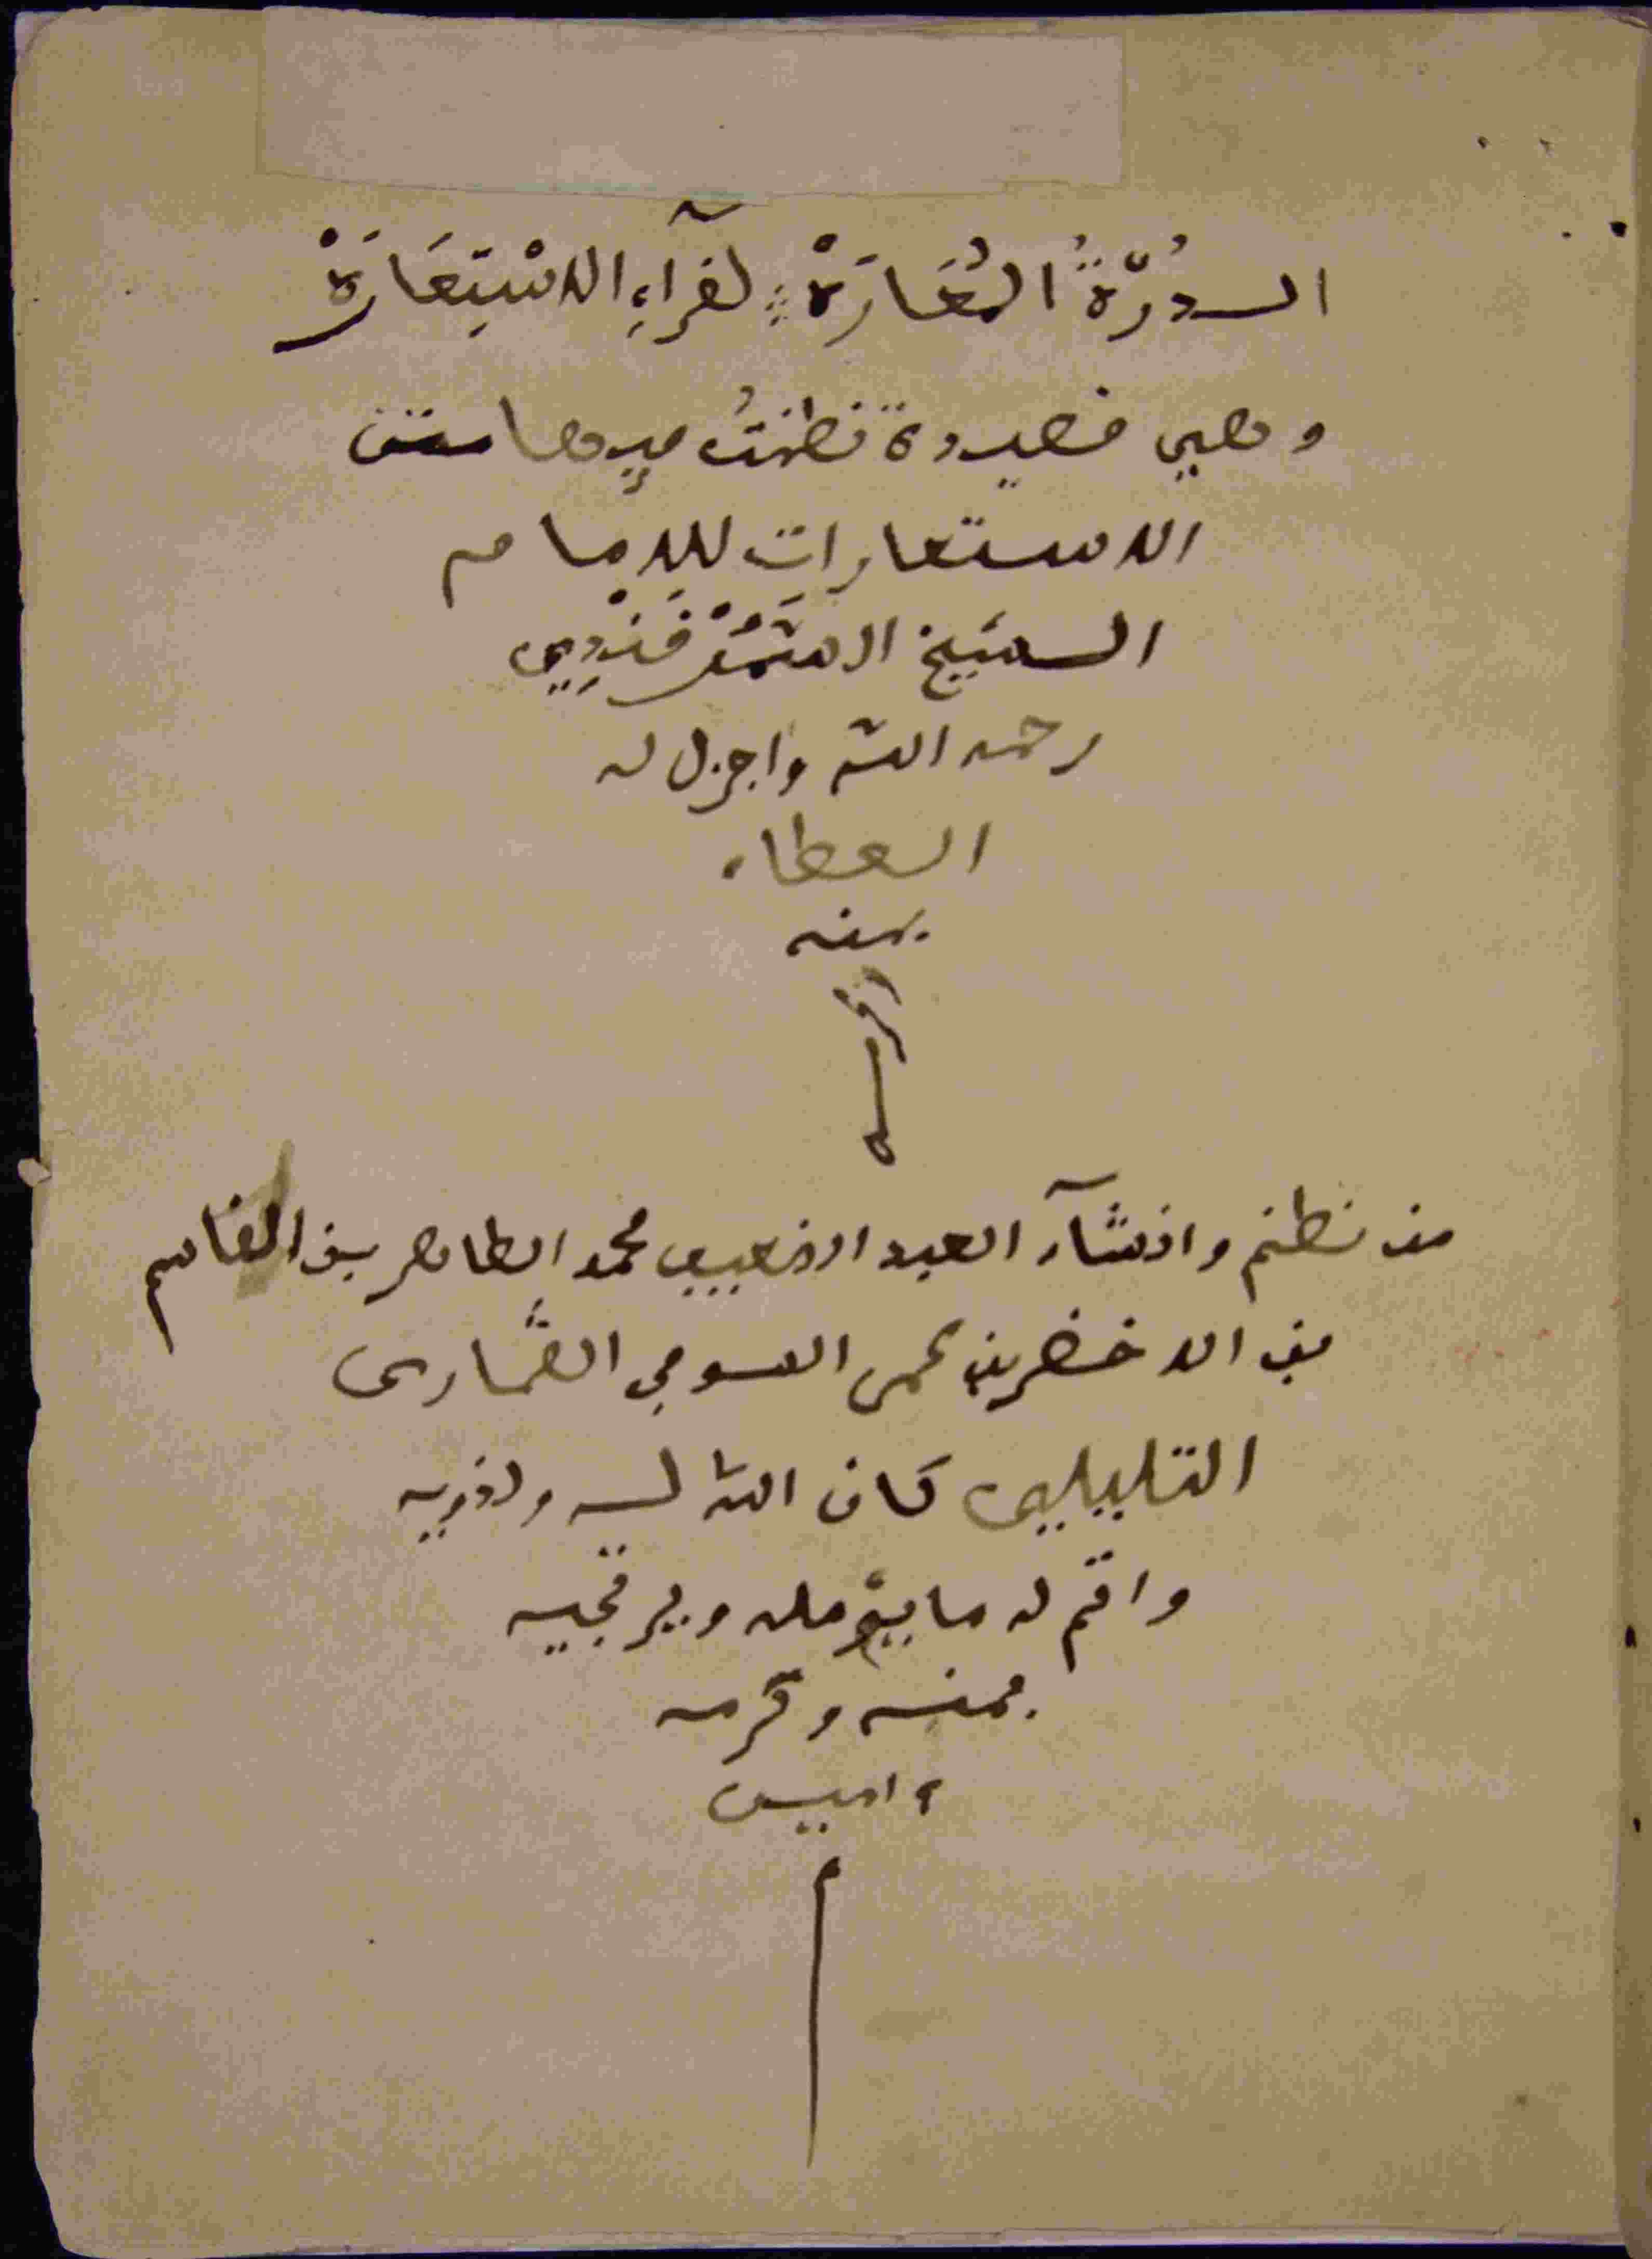 الدُرّةُ المُعَارَةْ لقرآءِ الاسْتِعَارَةْ
وهي قصيدة نظمتُ فيها متن
الاستعارات للإمام
الشيخ السَّمَرْقَنْدِي
رحمه الله واجزل له
العطاء
بمنه
من نظم وانشآء العبد الضعيف محمد الطاهر بن القاسم
بن الاخضر بن عمر السوفي القماري
التليلي كان الله له ولذويه
واتم له ما يؤمله ويرتجيه
بمنه وكرمه
ءامين